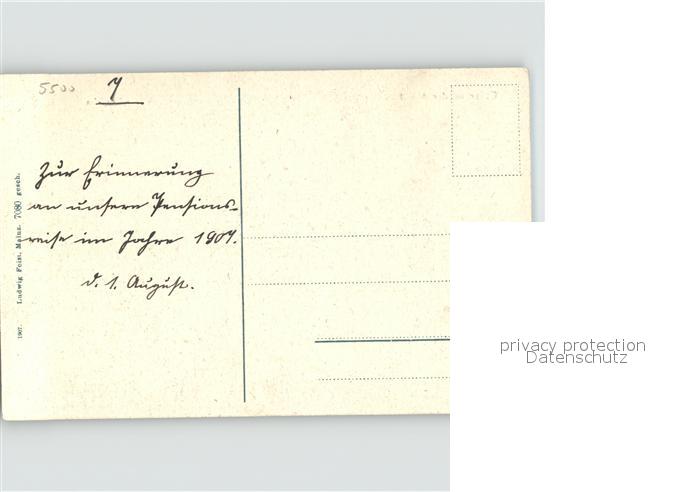 5500
7
Zur Erinnerung
an unsere Pensions-
reise im Jahre 1907.
d. 1. August.
1907. Ludwig Feist, Mainz. 7080 gesch.
privacy protection
Datenschutz